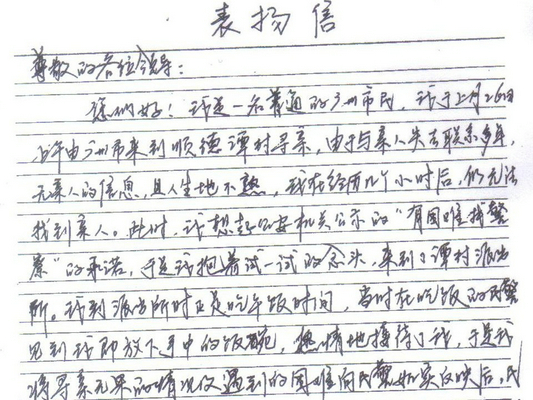 表扬信
尊敬的各位领导:
您们好!我是一名普通的广州市民,我于上月26日
上午由广州市来到顺德谭村寻亲,由于与亲人失去联系多年,
无亲人的信息,且人生地不熟,我在经历几个小时后,仍无法
找到亲人。此时,我想起公安机关公示的“有困难找警
察”的承诺,于是我抱着试一试的念头,来到了谭村派出
所。我到派出所时正是吃午饭时间,当时在吃饭的民警
见到我即放下手中的饭碗,热情地接待了我,于是我
将寻亲无果的情况仅遇到的困难向民警如实反映后,民